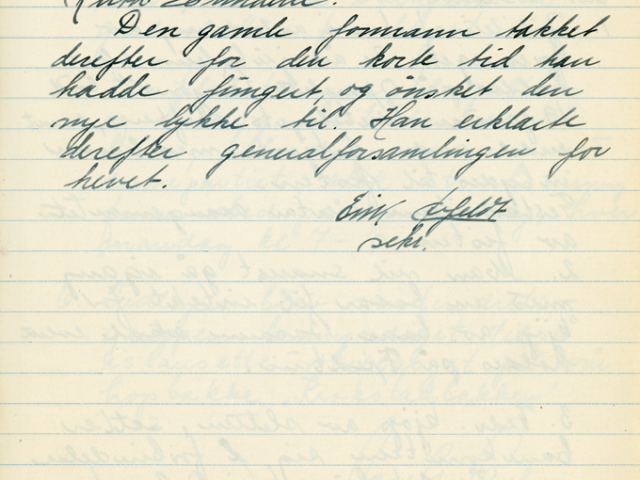 Den gamle formann takket
derefter for den korte tid han
hadde fungert, og ønsket den
nye lykke til. Han erklærte
derefter generalforsamlingen for
hevet.
Erik
sekr.